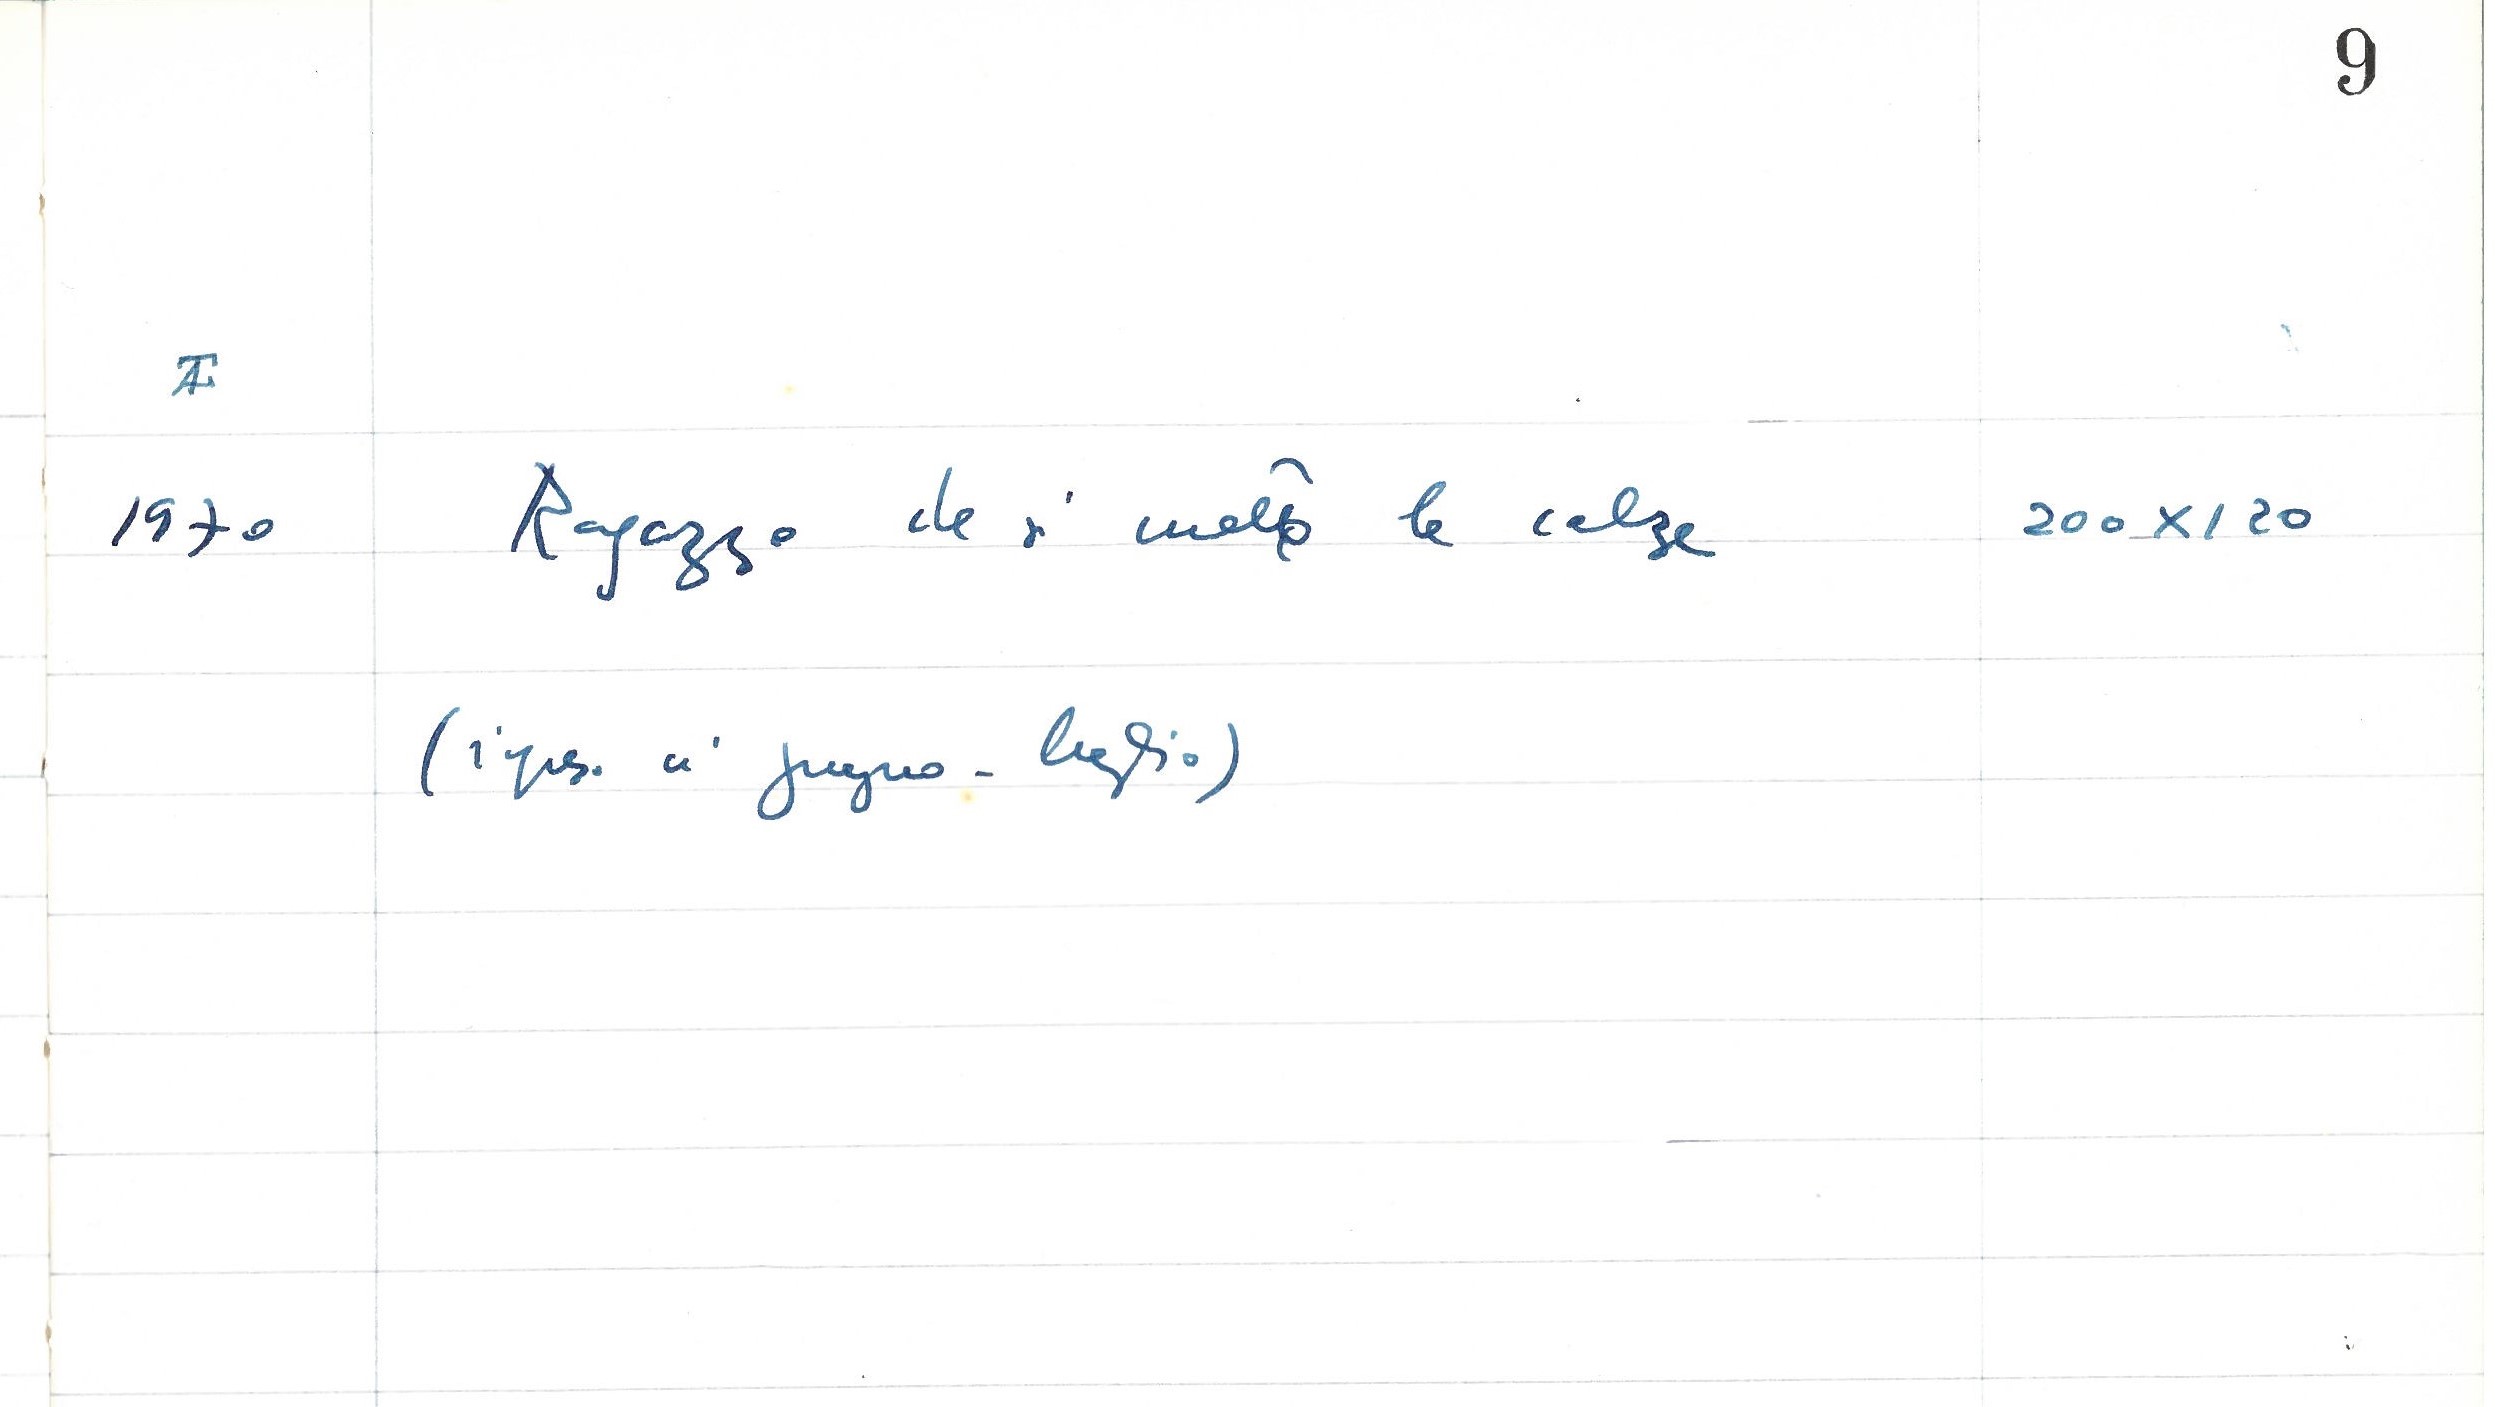 9
1970 Ragazzo che si mette le calze 200 X 120
(iniz. in giugno - luglio)